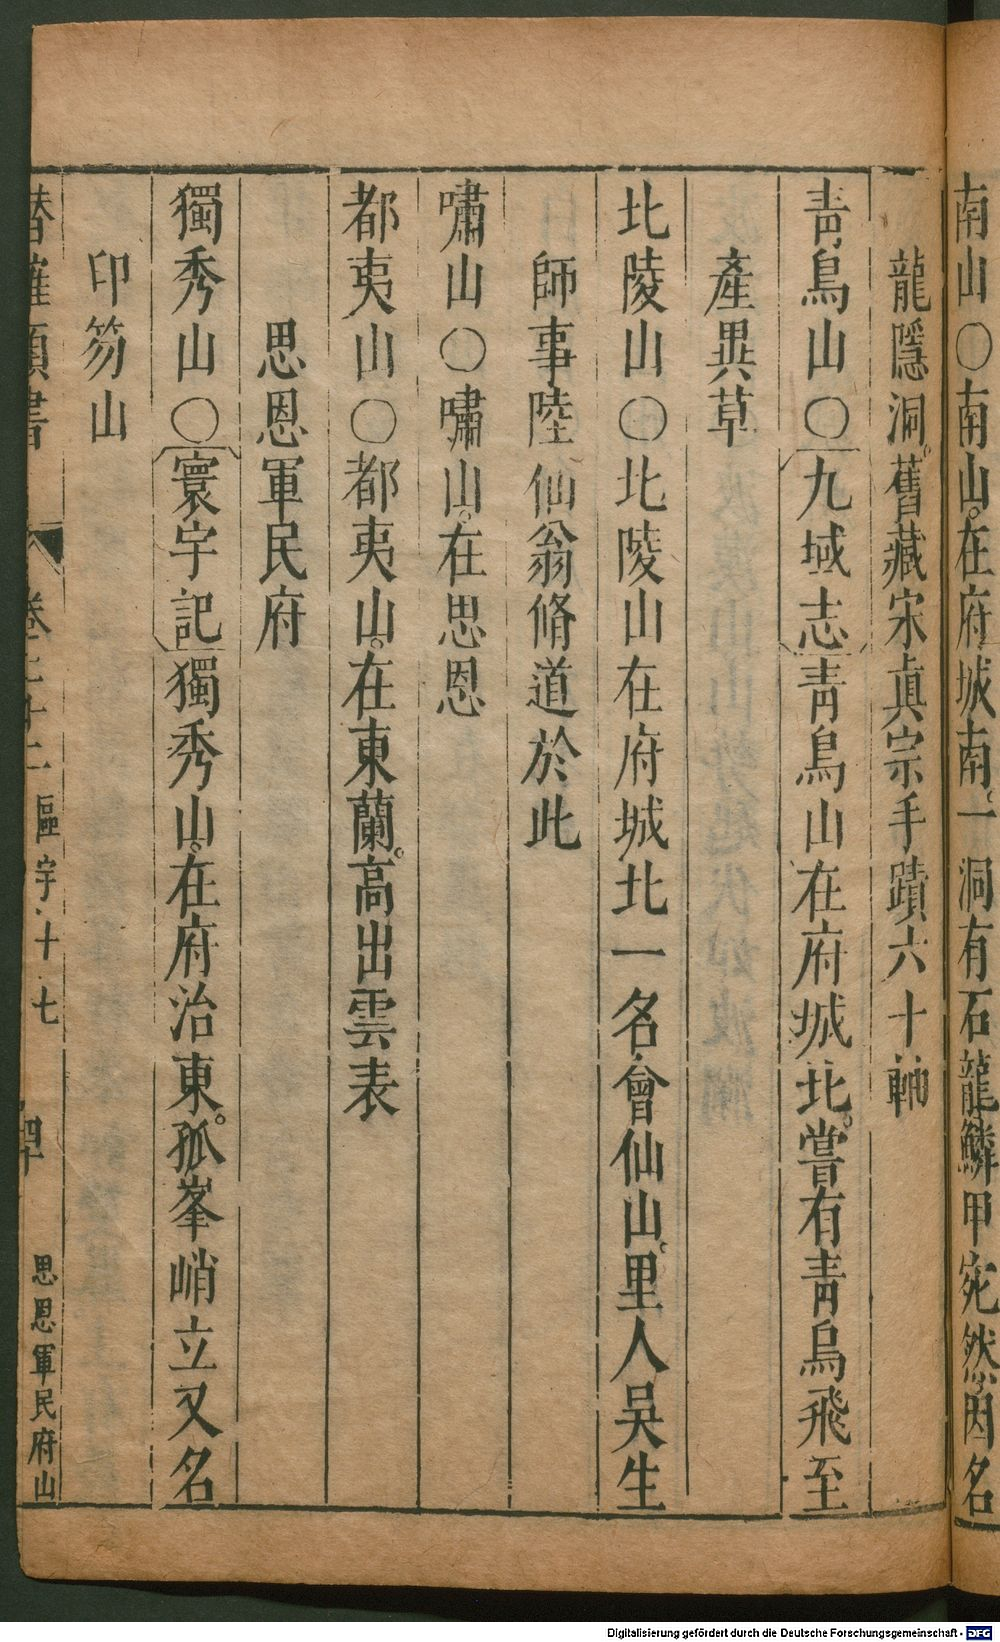 南山〇南山。在府城南。一洞有石龍鱗甲宛然。因名
龍隱洞。舊藏宋眞宗手蹟六十軸
靑鳥山〇九域志靑鳥山在府城北。嘗有靑鳥飛至
產異草
北陵山〇北陵山在府城北一名會仙山。里人吳生
師事陸仙翁脩道於此
嘯山〇嘯山。在思恩
都夷山〇都夷山。在東蘭。高出雲表
思恩軍民府
獨秀山〇寰宇記獨秀山。在府治東。孤峯峭立又名
印笏山
潛確類書 卷之十二 區宇十七 四十 思恩軍民府山
Digitalisierung gefördert durch die Deutsche Forschungsgemeinschaft - DFG